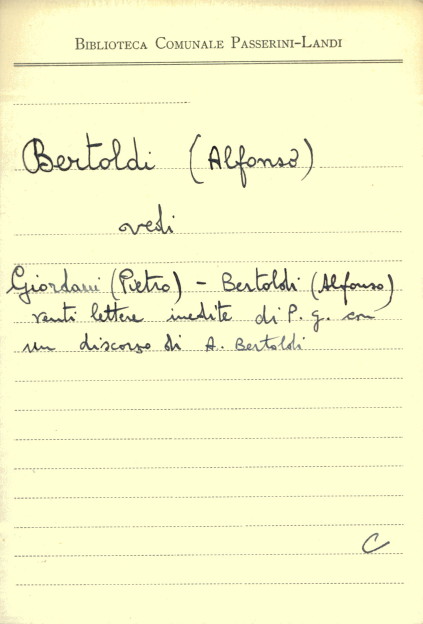 BIBLIOTECA COMUNALE PASSERINI-LANDI
Bertoldi (Alfonso)
vedi
Giordani (Pietro) - Bertoldi (Alfonso)
venti lettere inedite di P. G. con
un discorso di A. Bertoldi
C